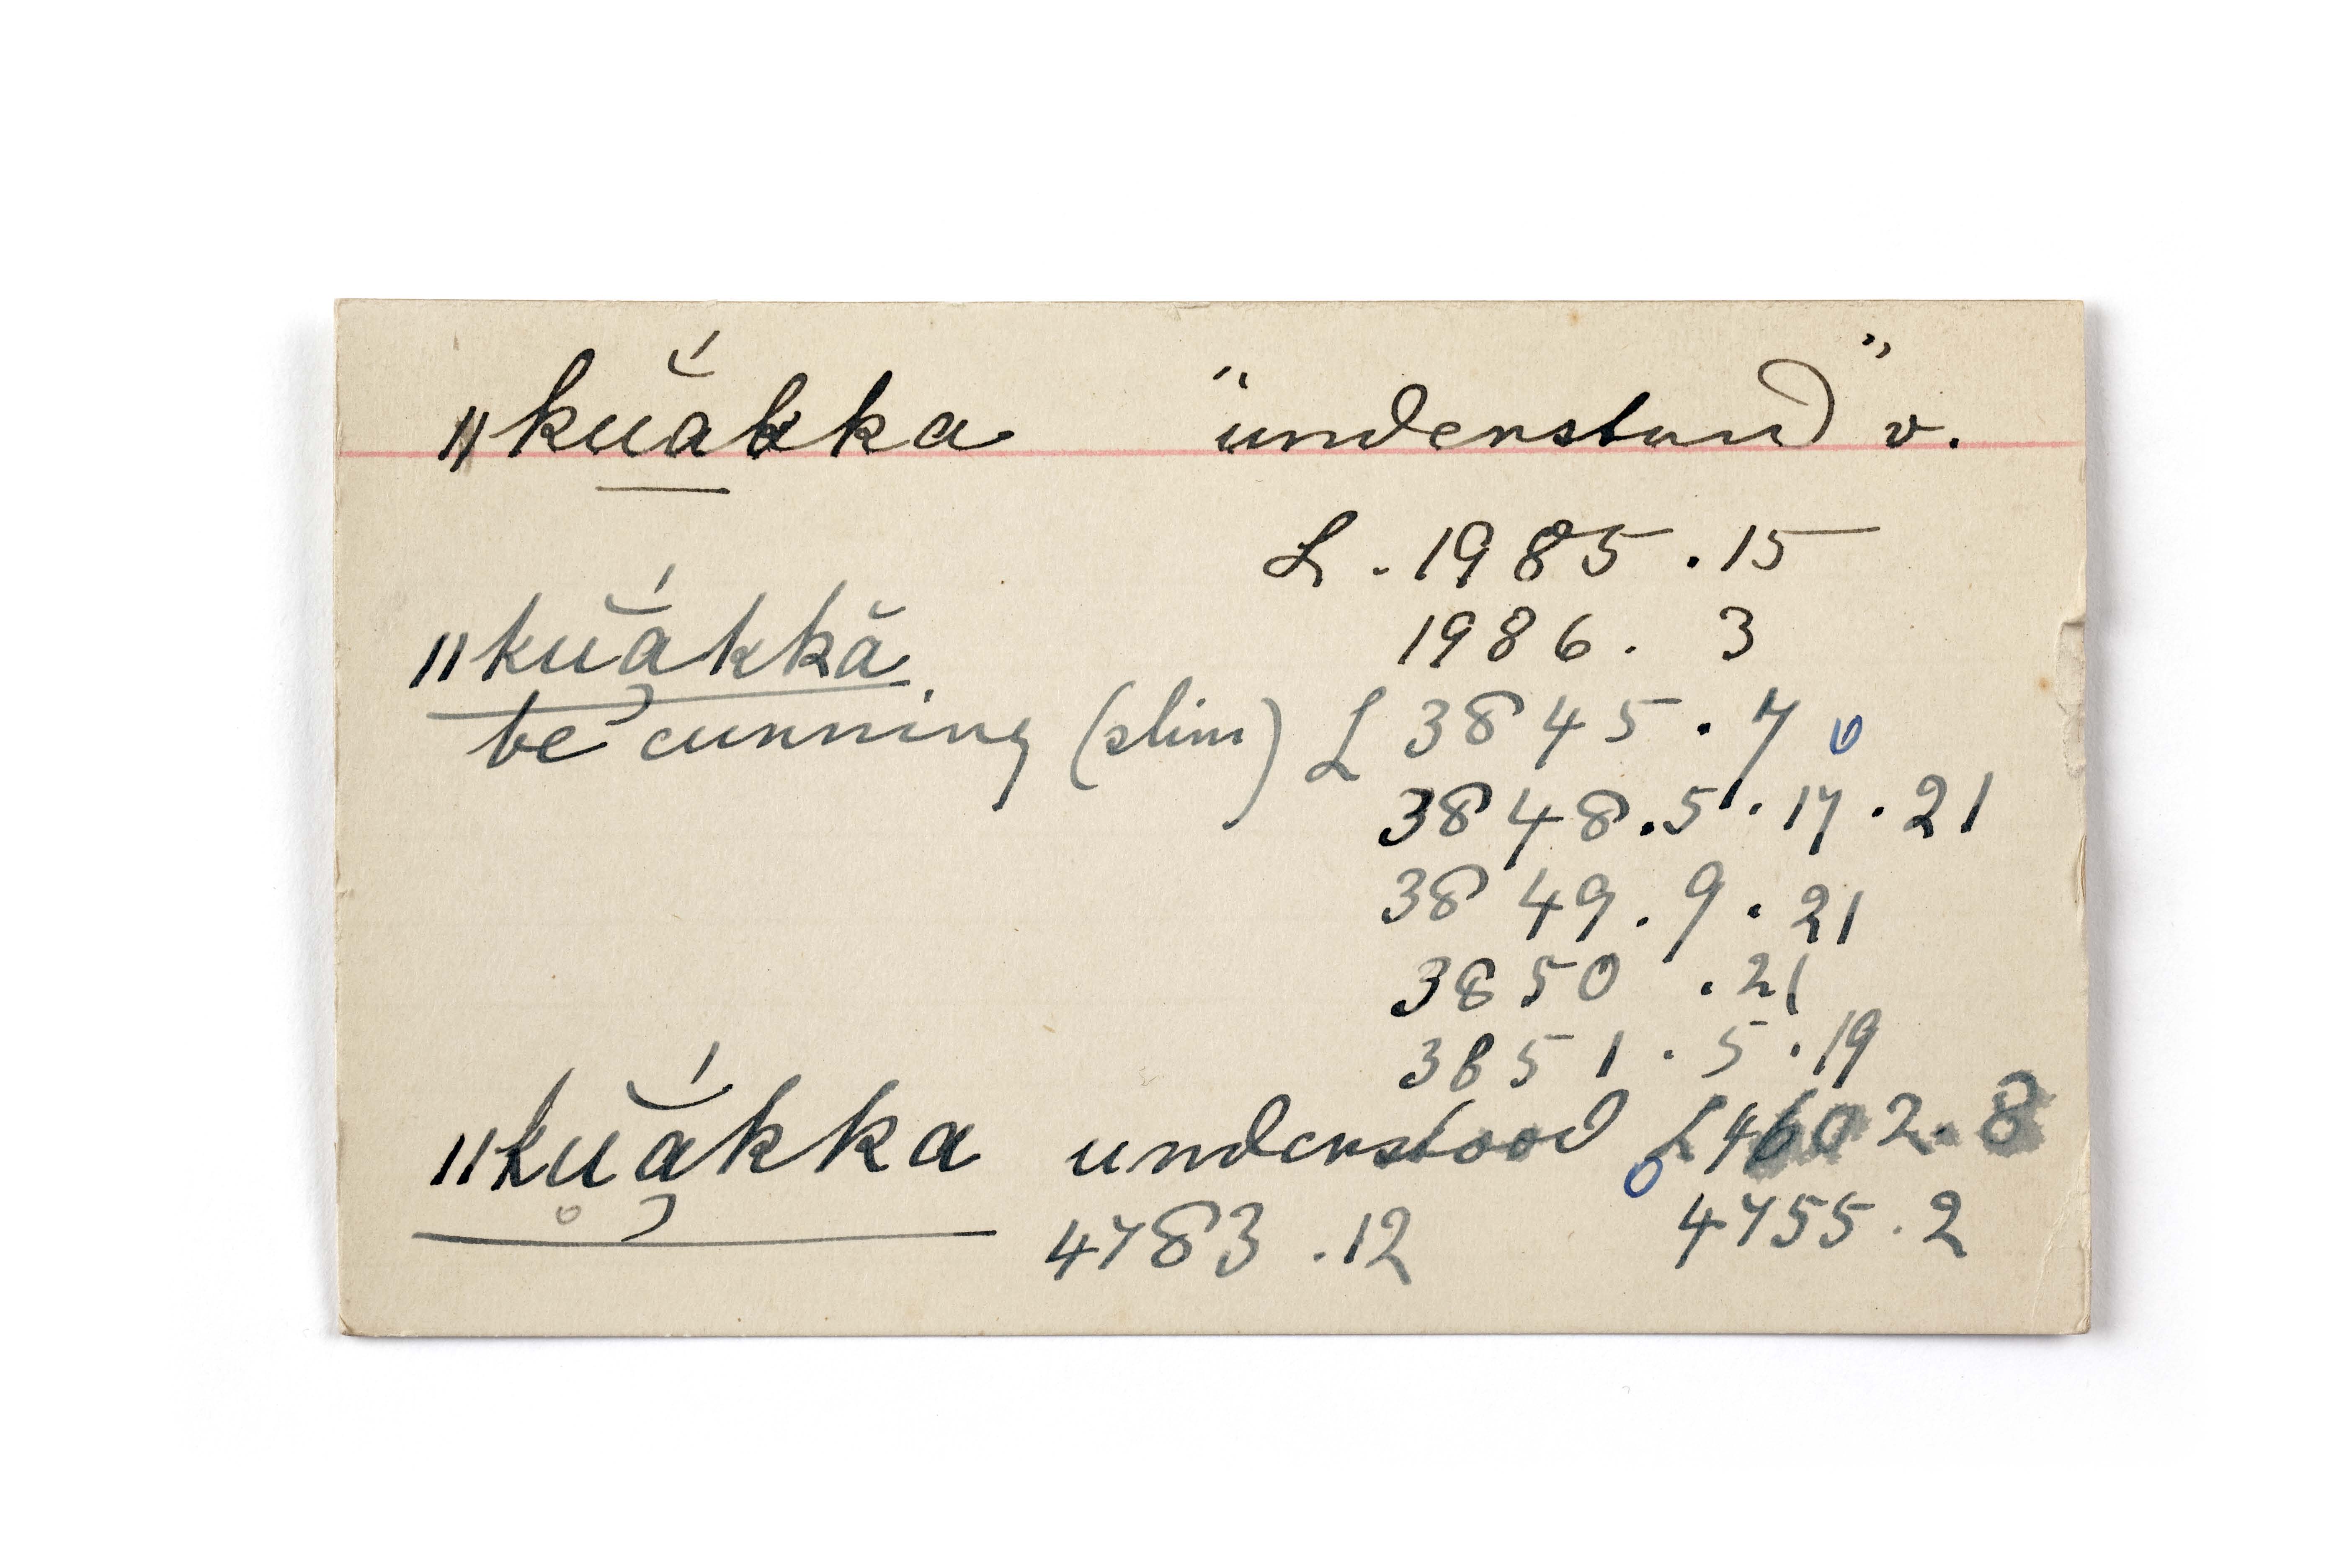 ‖kuắkka "understand" v.
L . 1985 . 15
1986 . 3
‖kuắkkă
be cunning (slim) L 3845 . 7
3848 . 5 . 17 . 21
3849 . 9 . 21
3850 . 21
3851 . 5 . 19
‖kuắkka understood L 4602 . 8
4783 . 12 4755 . 2